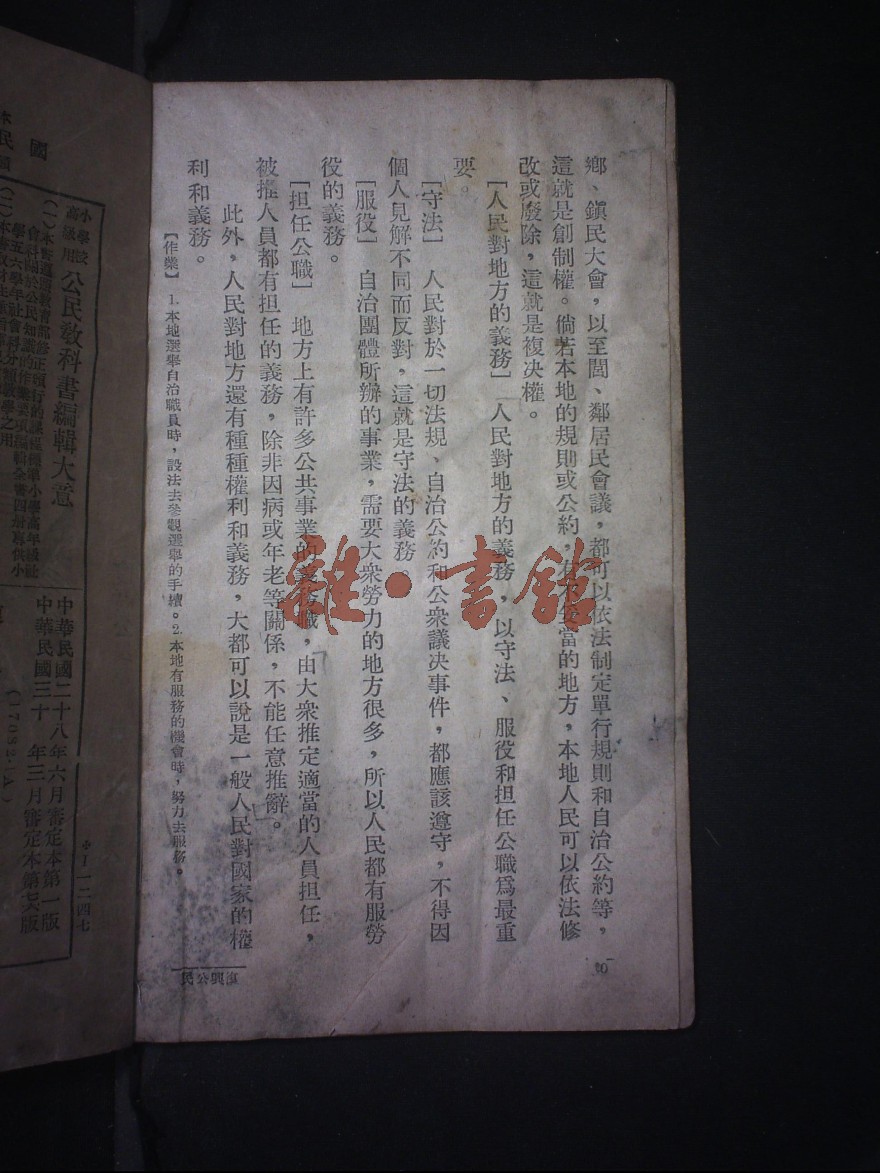 鄉、鎭民大會，以至閭、鄰居民會議，都可以依法制定單行規則和自治公約等，
這就是創制權。倘若本地的規則或公約，有不妥當的地方，本地人民可以依法修
改或廢除，這就是複决權。
［人民對地方的義務］人民對地方的義務，以守法、服役和担任公職爲最重
要。
［守法］人民對於一切法規、自治公約和公衆議决事件，都應該遵守，不得因
個人見解不同而反對，這就是守法的義務。
［服役］自治團體所辦的事業，需要大衆勞力的地方很多，所以人民都有服勞
役的義務。
［担任公職］地方上有許多公共事業的義務職，由大衆推定適當的人員担任，
被推人員都有担任的義務，除非因病或年老等關係，不能任意推辭。
此外，人民對地方還有種種權利和義務，大都可以說是一般人民對國家的權
利和義務。
［作業］1.本地選舉自治職員時，設法去參觀選舉的手續。2.本地有服務的機會時，努力去服務。
復興公民
雒·書館
國
民
小學校
高級用
公民敎科書編輯大意
中華民國二十八年六月審定本第一版
中華民國三十年三月審定本第
版